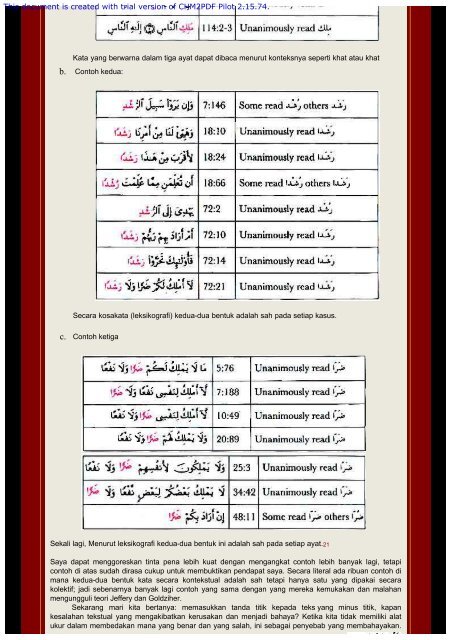 This document is created with trial version of CHM2PDF Pilot 2.15.74.
مَلِكِ ٱلنَّاسِ ۝ إِلَٰهِ ٱلنَّاسِ 114:2-3 Unanimously read ملك
Kata yang berwarna dalam tiga ayat dapat dibaca menurut konteksnya seperti khat atau khat
b. Contoh kedua:
وَإِن يَرَوْا۟ سَبِيلَ ٱلرُّشْدِ 7:146 Some read رُشْد others رَشَد
وَهَيِّئْ لَنَا مِنْ أَمْرِنَا رَشَدًا 18:10 Unanimously read رَشَدا
لِأَقْرَبَ مِنْ هَٰذَا رَشَدًا 18:24 Unanimously read رَشَدا
أَن تُعَلِّمَنِ مِمَّا عُلِّمْتَ رُشْدًا 18:66 Some read رُشْدا others رَشَدا
يَهْدِىٓ إِلَى ٱلرُّشْدِ 72:2 Unanimously read رُشْد
أَمْ أَرَادَ بِهِمْ رَبُّهُمْ رَشَدًا 72:10 Unanimously read رَشَدا
فَأُو۟لَٰٓئِكَ تَحَرَّوْا۟ رَشَدًا 72:14 Unanimously read رَشَدا
لَآ أَمْلِكُ لَكُمْ ضَرًّا وَلَا رَشَدًا 72:21 Unanimously read رَشَدا
Secara kosakata (leksikografi) kedua-dua bentuk adalah sah pada setiap kasus.
c. Contoh ketiga
مَا لَا يَمْلِكُ لَكُمْ ضَرًّا وَلَا نَفْعًا 5:76 Unanimously read ضَرّا
لَّآ أَمْلِكُ لِنَفْسِى نَفْعًا وَلَا ضَرًّا 7:188 Unanimously read ضَرّا
لَّآ أَمْلِكُ لِنَفْسِى ضَرًّا وَلَا نَفْعًا 10:49 Unanimously read ضَرّا
وَلَا يَمْلِكُ لَهُمْ ضَرًّا وَلَا نَفْعًا 20:89 Unanimously read ضَرّا
وَلَا يَمْلِكُونَ لِأَنفُسِهِمْ ضَرًّا وَلَا نَفْعًا 25:3 Unanimously read ضَرّا
لَا يَمْلِكُ بَعْضُكُمْ لِبَعْضٍ نَّفْعًا وَلَا ضَرًّا 34:42 Unanimously read ضَرّا
إِنْ أَرَادَ بِكُمْ ضَرًّا 48:11 Some read ضَرّا others ضُرّا
Sekali lagi, Menurut leksikografi kedua-dua bentuk ini adalah sah pada setiap ayat.21
Saya dapat menggoreskan tinta pena lebih kuat dengan mengangkat contoh lebih banyak lagi, tetapi
contoh di atas sudah dirasa cukup untuk membuktikan pendapat saya. Secara literal ada ribuan contoh di
mana kedua-dua bentuk kata secara kontekstual adalah sah tetapi hanya satu yang dipakai secara
kolektif; jadi sebenarnya banyak lagi contoh yang sama dengan yang mereka kemukakan dan malahan
mengungguli teori Jeffery dan Goldziher.
Sekarang mari kita bertanya: memasukkan tanda titik kepada teks yang minus titik, kapan
kesalahan tekstual yang mengakibatkan kerusakan dan menjadi bahaya? Ketika kita tidak memiliki alat
ukur dalam membedakan mana yang benar dan yang salah, ini sebagai penyebab yang membahayakan.